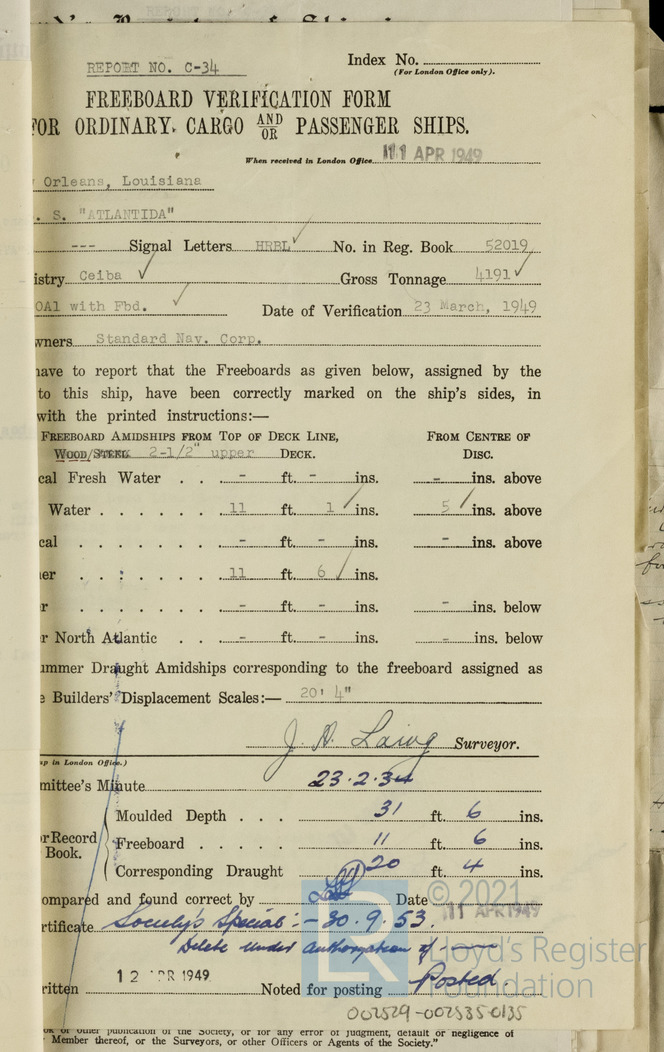 REPORT NO. C-34
Index No.
(For London Office only).
FREEBOARD VERIFICATION FORM
FOR ORDINARY CARGO AND/OR PASSENGER SHIPS.
When received in London Office 11 APR 1949
Orleans, Louisiana
. S. "ATLANTIDA"
--- Signal Letters HRBL No. in Reg. Book 52019
istry Ceiba Gross Tonnage 4191
OA1 with Fbd. Date of Verification 23 March, 1949
wners Standard Nav. Corp.
have to report that the Freeboards as given below, assigned by the
to this ship, have been correctly marked on the ship's sides, in
with the printed instructions:—
FREEBOARD AMIDSHIPS FROM TOP OF DECK LINE, FROM CENTRE OF
WOOD/STEEL 2-1/2" upper DECK. DISC.
cal Fresh Water . . - ft. - ins. - ins. above
Water . . . . . . 11 ft. 1 ins. 5 ins. above
cal . . . . . . . - ft. - ins. - ins. above
er . . . . . . . 11 ft. 6 ins.
r . . . . . . . - ft. - ins. - ins. below
r North Atlantic . . . - ft. - ins. - ins. below
ummer Draught Amidships corresponding to the freeboard assigned as
e Builders' Displacement Scales:— 20' 4"
J. A. Laing Surveyor.
p in London Office.)
mittee's Minute 23.2.34
Moulded Depth . . . 31 ft. 6 ins.
r Record Book. Freeboard . . . . . 11 ft. 6 ins.
Corresponding Draught 20 ft. 4 ins.
ompared and found correct by Date 11 APR 1949
rtificate Society's Special :- 30.9.53.
Delete under authorization of
ritten 12 APR 1949 Noted for posting Posted
002529-002535-0135
ok or other publication of the Society, or for any error of judgment, default or negligence of
Member thereof, or the Surveyors, or other Officers or Agents of the Society."
© 2021
LR Lloyd's Register
Foundation